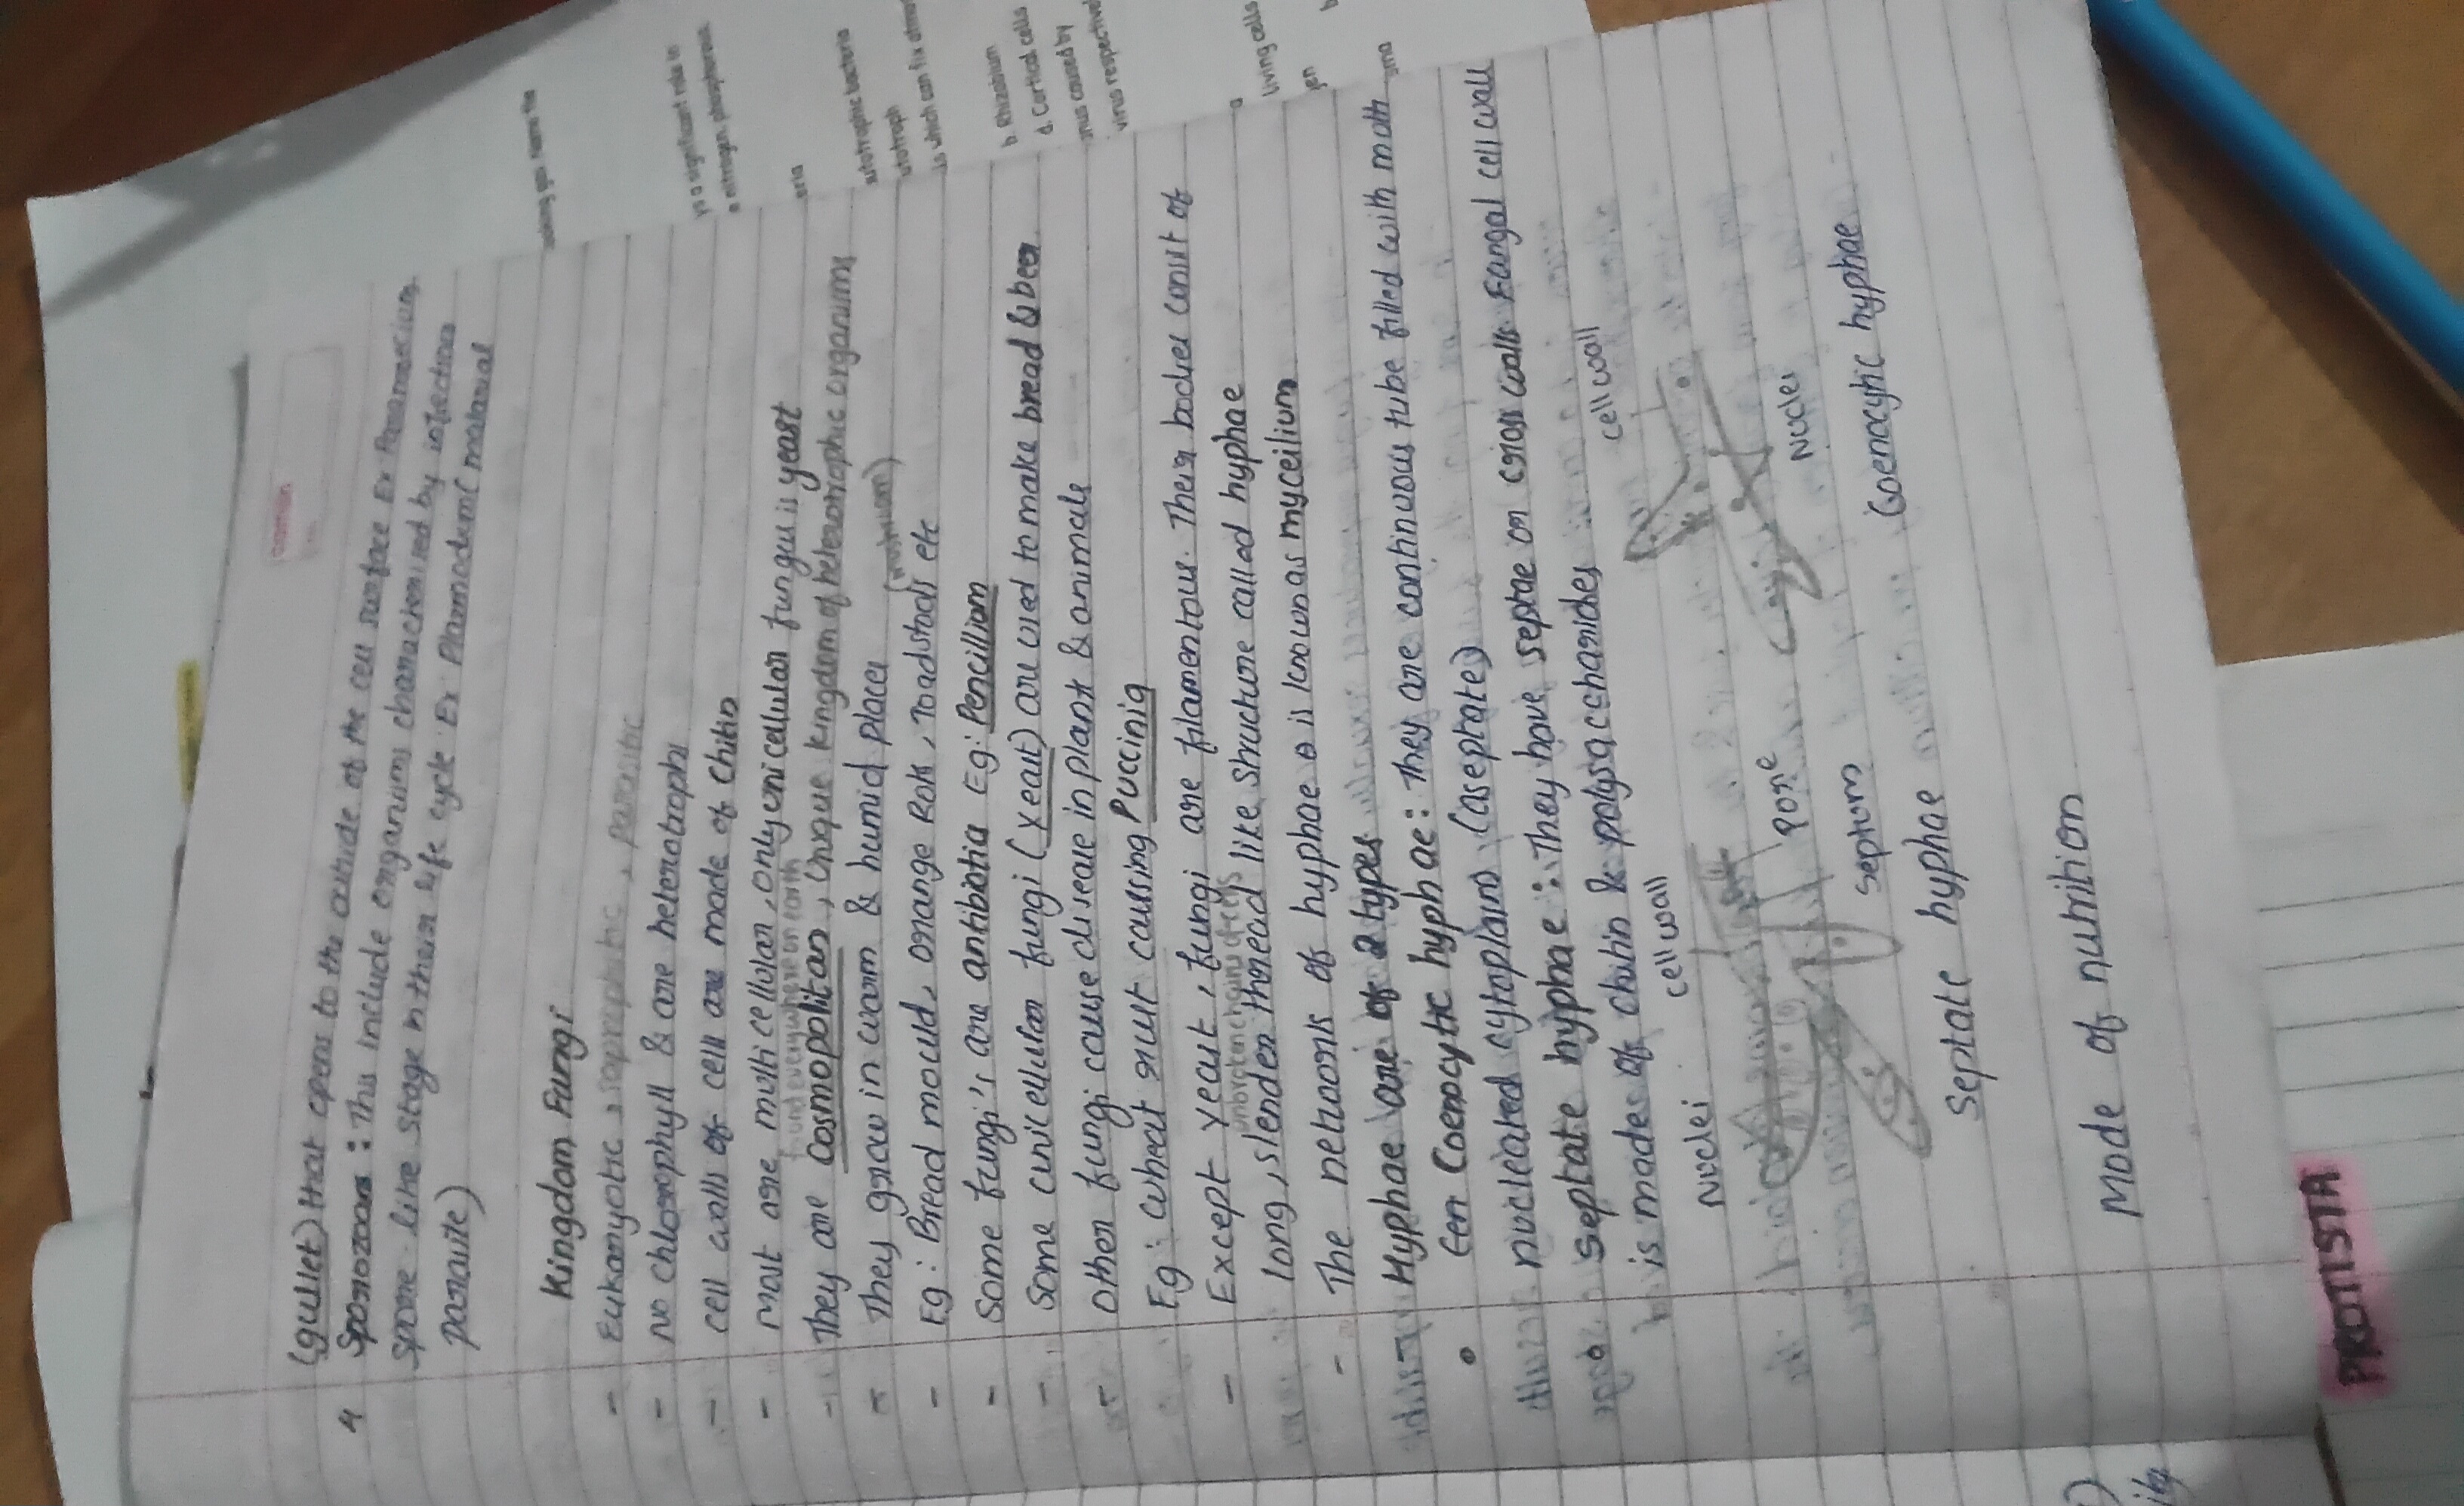 (gullet) that opens to the outside of the cell surface Ex Paramecium
4 Sporozoans : This include organisms characterised by infectious
spore like stage in their life cycle. Ex: Plasmodium( malarial
parasite)
Kingdom Fungi
- Eukaryotic, saprophytic, parasitic
- no chlorophyll & are heterotrophs
- cell walls of cell are made of chitin
- most are multicellular, only unicellular fungus is yeast
found everywhere on earth
- They are cosmopolitan, unique kingdom of heterotrophic organisms
- They grow in warm & humid places
(mushroom)
- Eg: Bread mould, orange Rots, toadstools etc
- Some fungi's are antibiotia Eg: Pencillium
- Some unicellular fungi (yeast) are used to make bread & beer
- other fungi cause disease in plant & animals
Eg: wheat rust causing Puccinia
- Except yeast, fungi are filamentous. Their bodies consit of
unbroken chains of cells
long, slender thread like structure called hyphae
- The networks of hyphae is known as myceilium
Hyphae are of 2 types
• Coenocytic hyphae: They are continuous tube filled with multi
nucleated cytoplasm (aseptate)
• septate hyphae: They have septae or cross walls Fungal cell wall
is made of chitin & polysaccharides
Nuclei cell wall cell wall
Pore Nuclei
septum
Septate hyphae Coenocytic hyphae
Mode of nutrition
PROTISTA
b. Rhizobium
d. Cortical cells
virus caused by
virus respective
living cells
autotrophic bacteria
which can fix
a significant role in
nitrogen, phosphorous